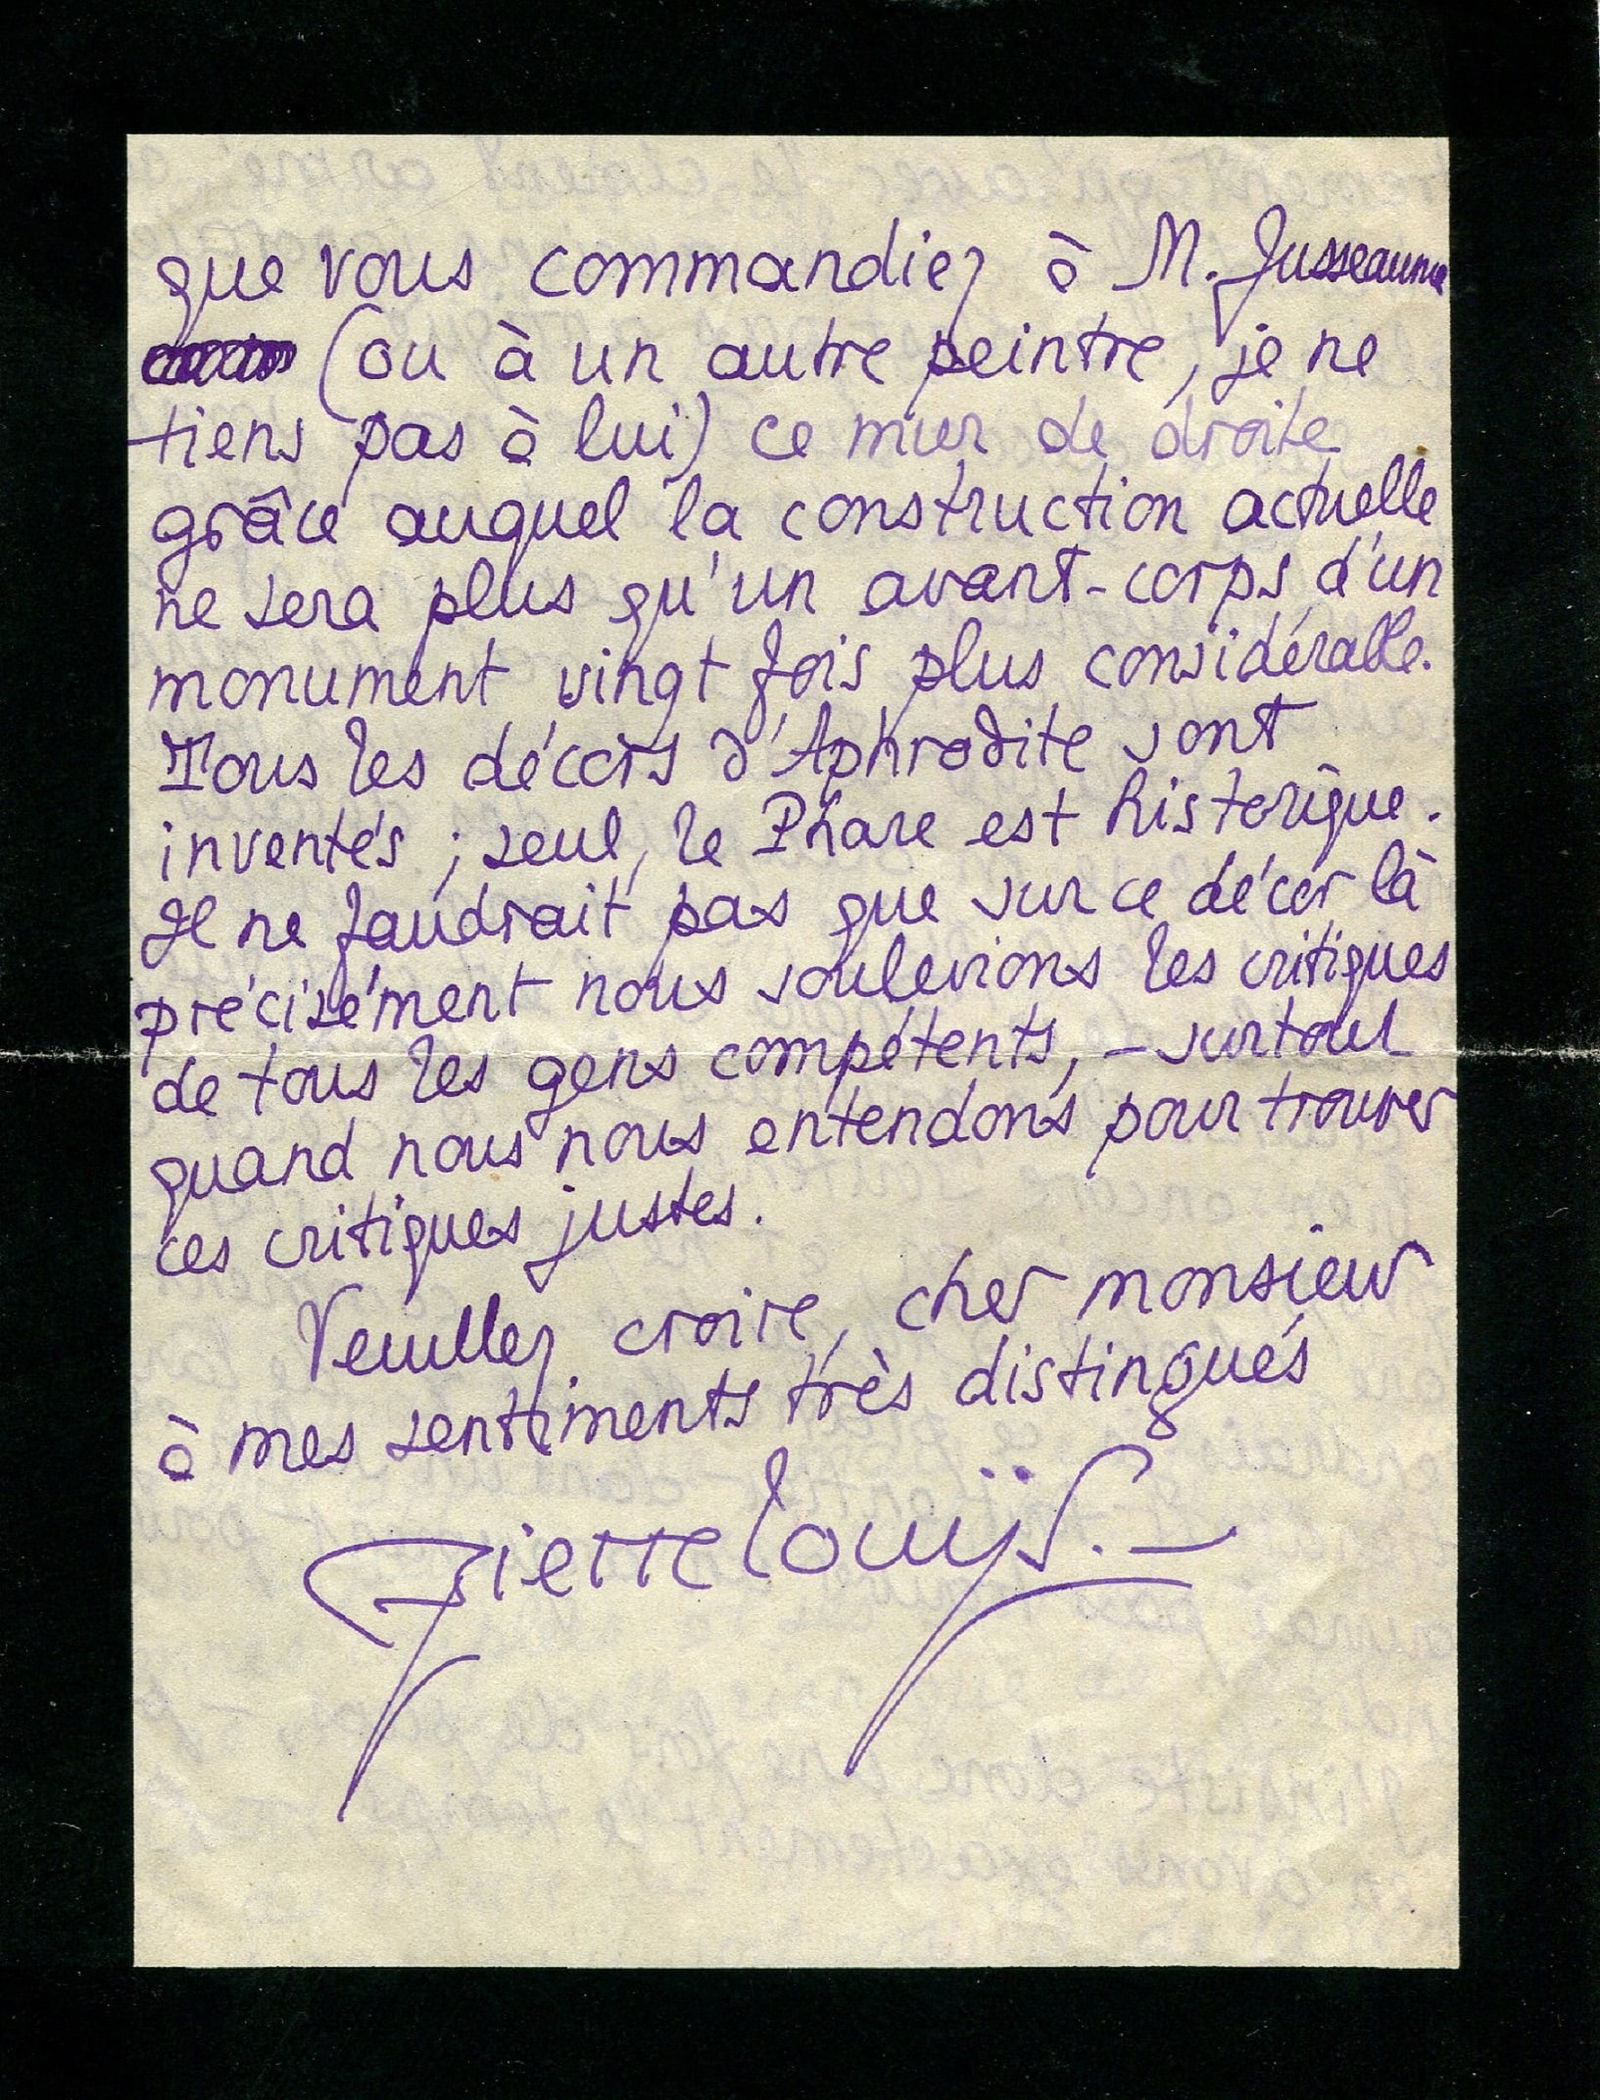 que vous commandiez à M. Jusseaume
(ou à un autre peintre, je ne
tiens pas à lui) ce mur de droite
grâce auquel la construction actuelle
ne sera plus qu'un avant-corps d'un
monument vingt fois plus considérable.
Tous les décors d'Aphrodite sont
inventés ; seul, le Phare est historique.
Il ne faudrait pas que sur ce décor là
précisément nous soulevions les critiques
de tous les gens compétents, – surtout
quand nous nous entendons pour trouver
ces critiques justes.
Veuillez croire, cher monsieur
à mes sentiments très distingués
Pierre Louÿs. –